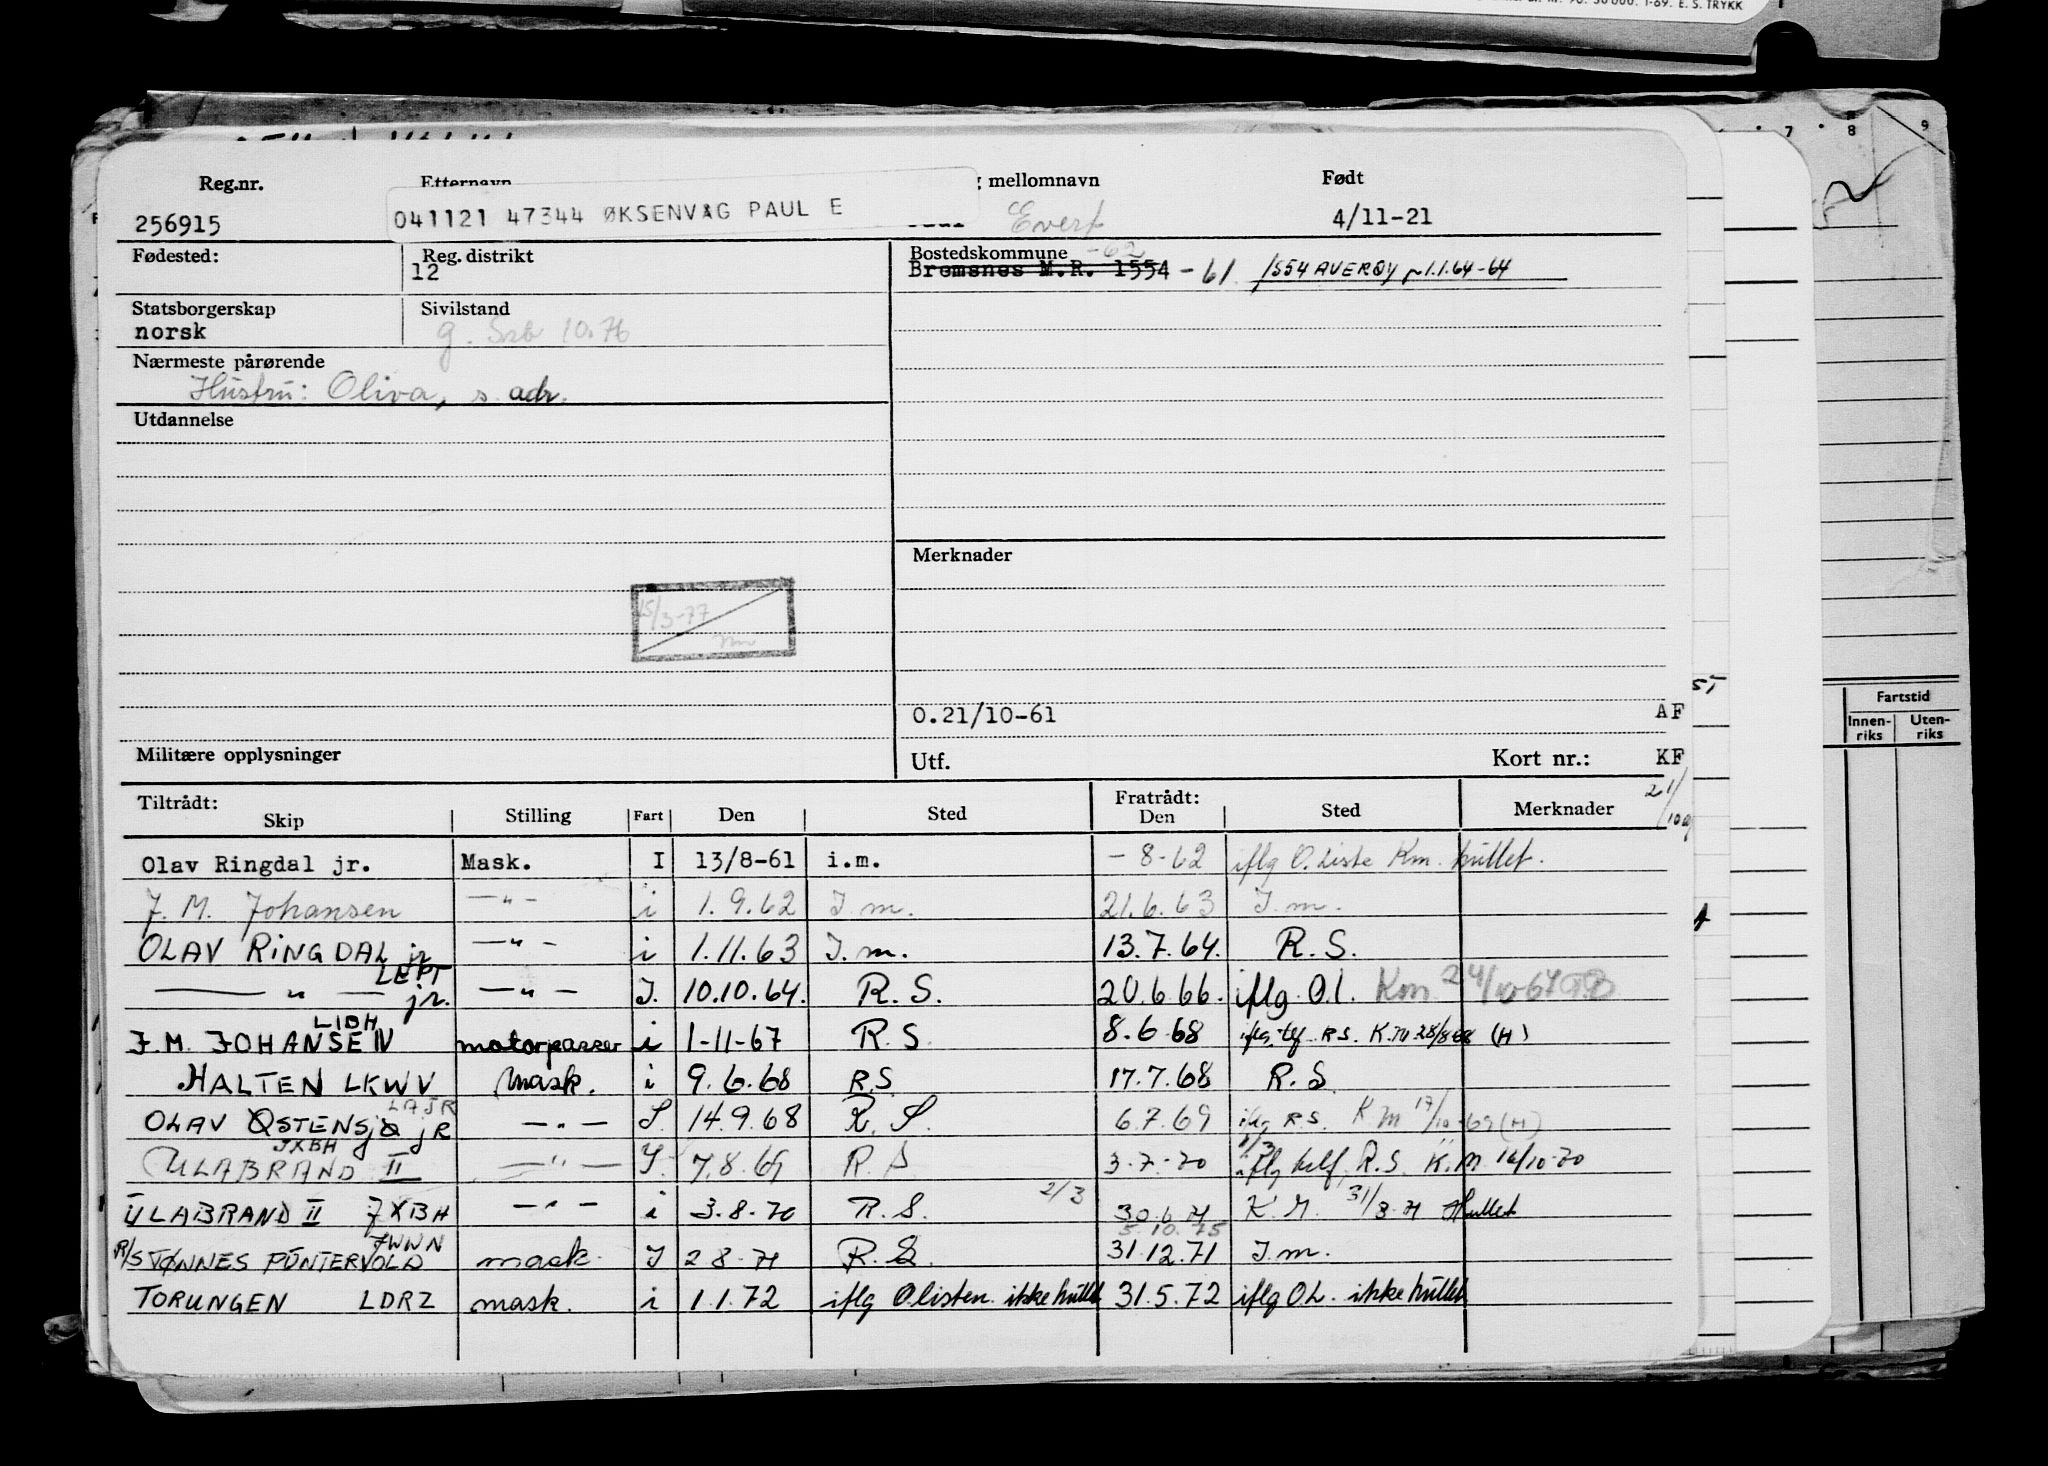 30 000. 1-69. E. S. TRYKK
7 8 9
Reg.nr. Etternavn mellomnavn Født
256915 041121 47344 ØKSENVåG PAUL E Evert 4/11-21
Fødested: Reg. distrikt Bostedskommune -62
12 Bremsnes M.R. 1554 -61 1554 AVERØY 1.1.64-64
Statsborgerskap Sivilstand
norsk g. 10.76
Nærmeste pårørende
Hustru: Oliva, s. adr.
Utdannelse
Merknader
15/3-77
O.21/10-61 AF
Militære opplysninger Utf. Kort nr.: KF
Fartstid
Innenriks Utenriks
Tiltrådt: Fratrådt: 21/10
Skip Stilling Fart Den Sted Den Sted Merknader
Olav Ringdal jr. Mask. I 13/8-61 i.m. - 8-62 iflg O. Liste Km. hullet.
J. M. Johansen —"— i 1.9.62 I.m. 21.6.63 I.m.
OLAV RINGDAL jr —"— i 1.11.63 I.m. 13.7.64. R.S.
LEPT
— " — jr. —"— I. 10.10.64. R.S. 20.6.66. iflg. O.l. Km 24/10-67
LIDH
J.M. JOHANSEN motorpasser i 1-11-67 R.S. 8.6.68 iflg. tlf. R.S. K.M 28/8-68 (H)
HALTEN LKWV Mask. i 9.6.68 R.S 17.7.68 R.S
LAJR
OLAV ØSTENSJØ jR —"— I. 14.9.68 R.S. 6.7.69 iflg R.S. K.M 17/10-69 (H)
JXBH
ULABRAND II —"— I. 7.8.69 R.S 3-7-70 iflg telf. R.S. K.M. 16/10-70
ULABRAND II JXBH —"— i 3.8.70 R.S. 2/3 30.6.71 K.M. 31/3.71 Hullet
JWWN 5.10.75
R/S TØNNES PUNTERVOLD mask. I 2 8-71 R.S. 31.12.71 I.m.
TORUNGEN LDRZ mask. i 1.1.72 iflg Olisten. ikke hullet 31.5.72 iflg OL. ikke hullet